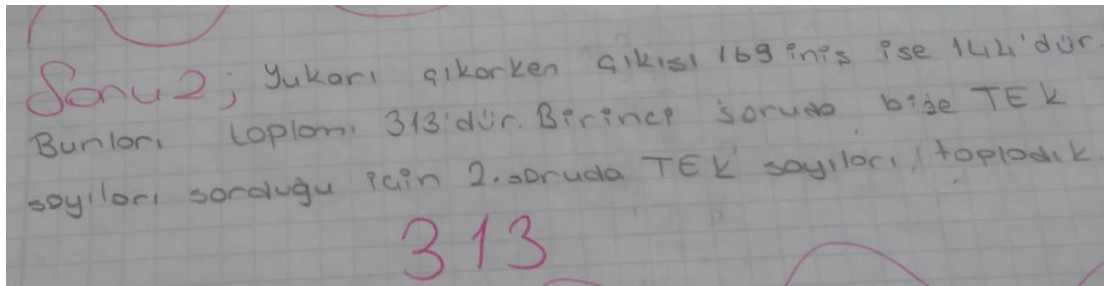 Soru 2; Yukarı çıkarken çıkışı 169 iniş ise 144'dür.
Bunları toplamı 313'dür. Birinci soruda bize TEK
sayıları sorduğu için 2. soruda TEK sayıları topladık.
313